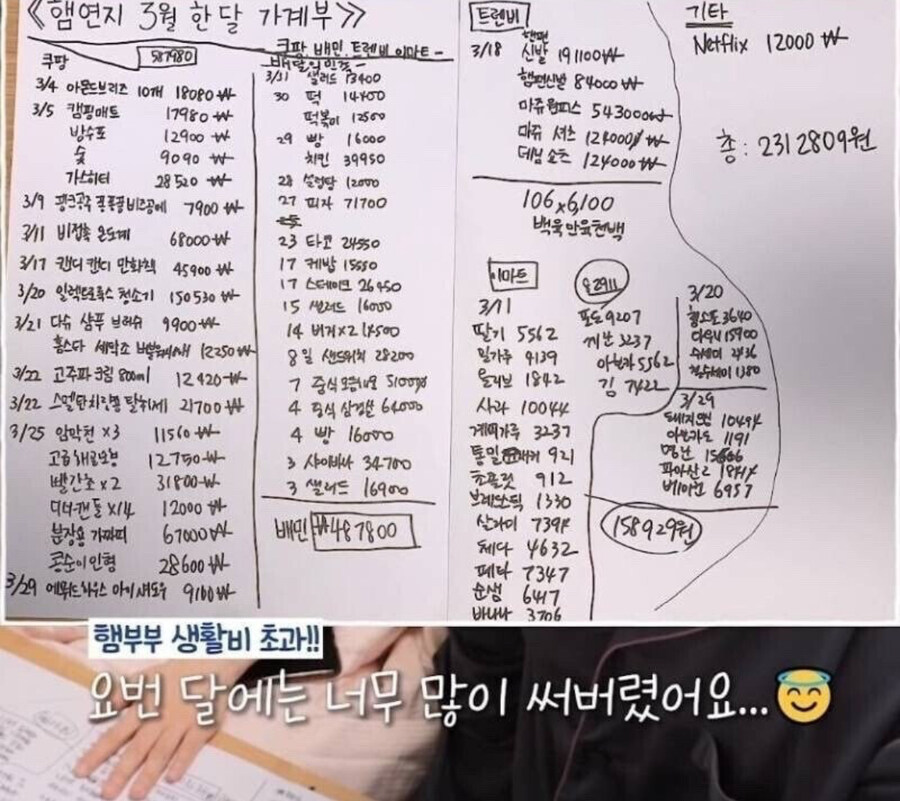 《햄연지 3월 한달 가계부》
쿠팡 587980
3/4 아몬드브리즈 10개 18080₩
3/5 캠핑매트 17980₩
방수포 12900₩
숯 9090₩
가스히터 28520₩
3/9 핑크공주 퐁퐁꽃비즈공예 7900₩
3/11 비접촉 온도계 68000₩
3/17 캔디캔디 만화책 45900₩
3/20 일렉트로룩스 청소기 150530₩
3/21 다슈 샴푸 브러쉬 9900₩
홈스타 세탁소 12250₩
3/22 고주파 크림 800ml 12420₩
3/22 탈취제 21700₩
3/25 암막천 ×3 11560₩
고급해골모형 12750₩
빨간초 ×2 31800₩
디너캔들 ×14 12000₩
분장용 가짜피 67000₩
콩순이인형 28600₩
3/29 에뛰드하우스 아이섀도우 9160₩
쿠팡, 배민, 트렌비, 이마트-
배달의민족-
3/31 샐러드 13400
30 떡 14400
떡볶이 12500
29 빵 16000
치킨 39950
28 설렁탕 12000
27 피자 71700
23 타코 24550
17 케밥 15550
17 스테이크 26450
15 샐러드 16000
14 버거×2 14500
8일 샌드위치 28200
7 중식 51000
4 중식 64000
4 빵 16000
3 샤이바나 34700
3 샐러드 16900
배민 ₩487800
트렌비
3/18 햄편
신발 191100₩
햄편신발 84000₩
마쥬원피스 543000₩
마쥬 셔츠 124000₩
데님 쇼츠 124000₩
106×6,100
백육만육천백
이마트
3/11
딸기 5562
밀가루 4139
올리브 1842
사과 10044
계피가루 3237
통밀 921
초콜릿 912
브레드스틱 1330
삼겹이 7394
체다 4632
페타 7347
순샘 6417
바나나 3706
포도 9207
깨순 3237
아보카도 5562
김 7422
3/20
3640
다우니 15900
수세미 2436
철수세미 1380
3/29
10494
아보카도 1191
명란
파마산2
베이컨 6957
158929원
기타
Netflix 12000₩
총: 2312809원
햄부부 생활비 초과!!
요번 달에는 너무 많이 써버렸어요...